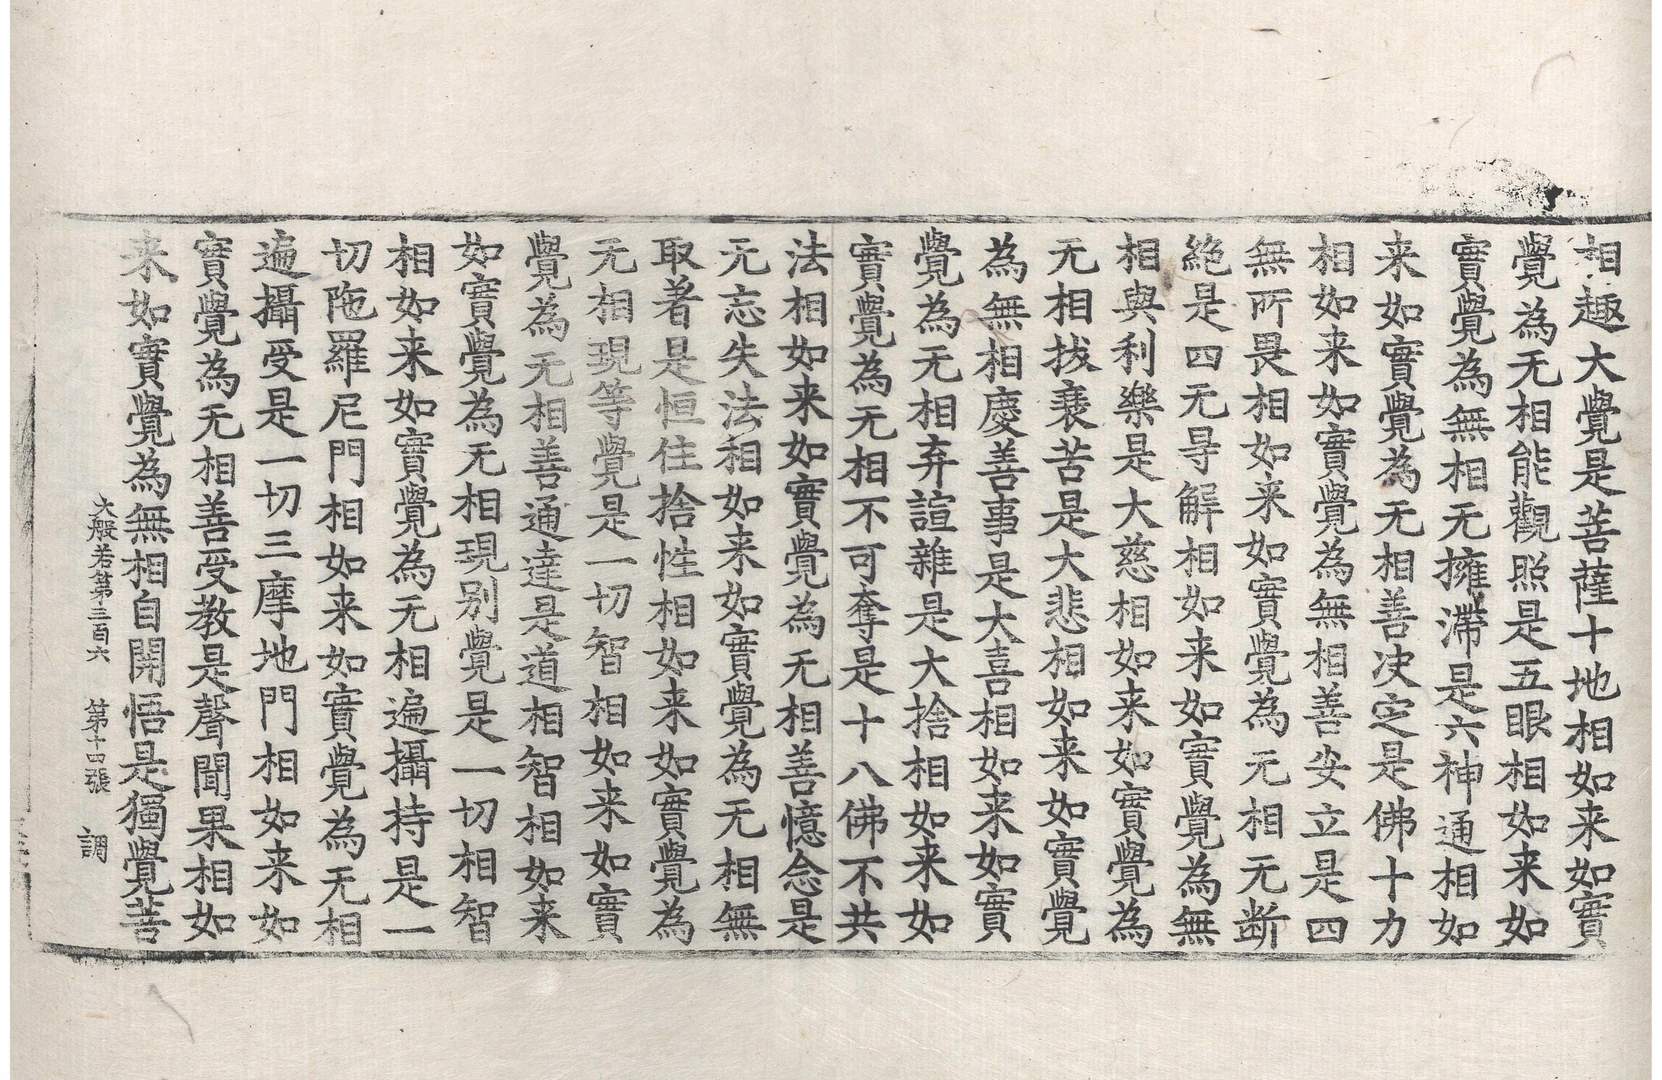 相趣大覺是菩薩十地相如来如實
覺為无相能觀照是五眼相如来如
實覺為無相无擁滯是六神通相如
来如實覺為无相善决定是佛十力
相如来如實覺為無相善安立是四
無所畏相如来如實覺為无相无断
絶是四无㝵解相如来如實覺為無
相與利樂是大慈相如来如實覺為
无相拔衰苦是大悲相如来如實覺
為無相慶善事是大喜相如来如實
覺為无相弃諠雜是大捨相如来如
實覺為无相不可奪是十八佛不共
法相如来如實覺為无相善憶念是
无忘失法相如来如實覺為无相無
取著是恒住捨性相如来如實覺為
无相現等覺是一切智相如来如實
覺為无相善通達是道相智相如来
如實覺為无相現别覺是一切相智
相如来如實覺為无相遍攝持是一
切陁羅尼門相如来如實覺為无相
遍攝受是一切三摩地門相如来如
實覺為无相善受教是聲聞果相如
来如實覺為無相自開悟是獨覺菩
大般若第三百六 第十四張 調